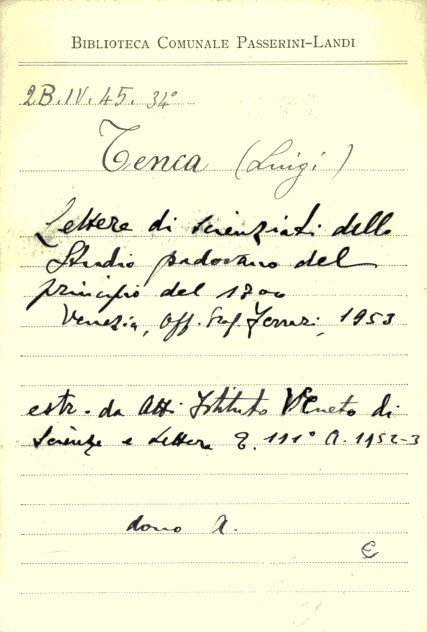 BIBLIOTECA COMUNALE PASSERINI-LANDI
2B.IV.45.34°
Tenca (Luigi)
Lettere di scienziati dello
Studio padovano del
principio del 1700
Venezia, Off. Graf. Ferrari, 1953
estr. da Atti Istituto Veneto di
Scienze e Lettere T. 111° A. 1952-3
dono A.